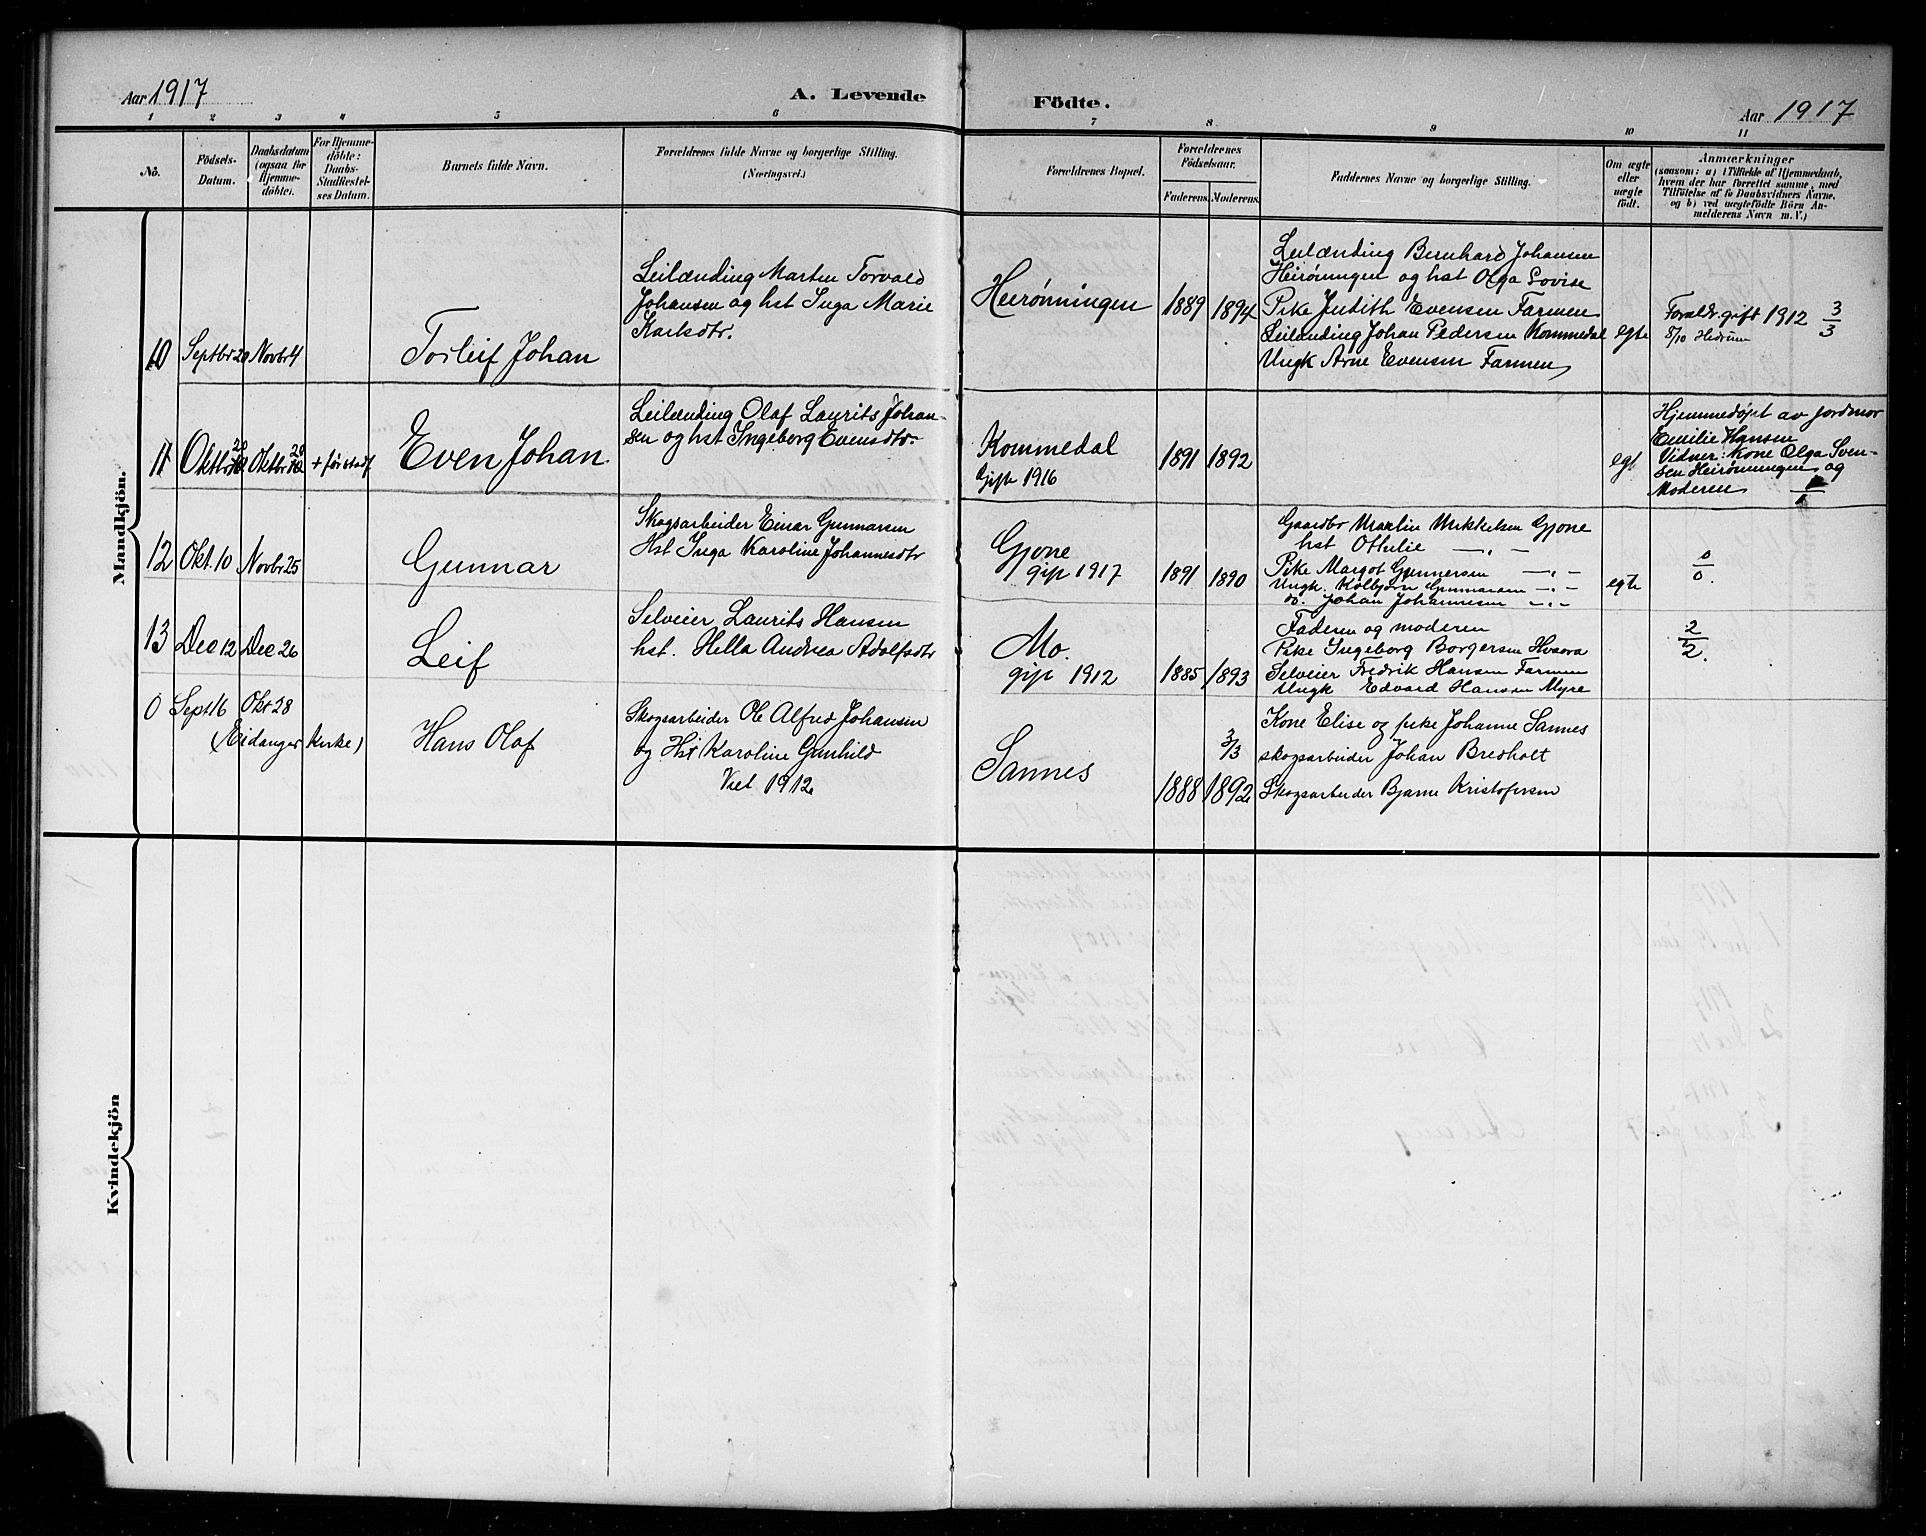 Aar 1917
A. Levende Födte.
Aar 1917
1 2 3 4 5 6 7 8 9 10 11
No.
Födsels-
Datum.
Daabsdatum
(ogsaa for
Hjemme-
döbte).
For Hjemme-
döbte:
Daabs-
Stadfæstel-
ses Datum.
Barnets fulde Navn.
Forældrenes fulde Navne og borgerlige Stilling.
(Næringsvei.)
Forældrenes Bopæl.
Forældrenes
Födselsaar.
Faderens.
Moderens.
Faddernes Navne og borgerlige Stilling.
Om ægte
eller
uægte
födt.
Anmærkninger
(saasom: a) i Tilfælde af Hjemmedaab,
hvem der har forrettet samme, med
Tilföielse af to Daabsvidners Navne,
og b) ved uægtefödte Börn An-
melderens Navn m. V.)
Mandkjön.
10 Septbr 20 Novbr 4
Torleif Johan
Leilænding Marten Torvald
Johansen og hst Inga Marie
Karlsdtr.
Heirønningen
1889 1894
Leilænding Bernhard Johansen
Heirønningen og hst Olga Lovise
Pike Judith Evensen Farmen
Leilænding Johan Pedersen Kommedal
Ungk Arne Evensen Farmen
egte
Forældr. gift 1912
8/10 Hedrum
3/3
11 Oktbr 20 Oktbr 20 + før stadf
Even Johan
Leilænding Olaf Laurits Johan-
sen og hst Ingeborg Evensdtr
Kommedal
Gift 1916
1891 1892
egt
Hjemmedøpt av jordmor
Emilie Hansen
Vidner: Kone Olga Sven-
sen Heirønningen og
Moderen
12 Okt. 10 Novbr 25
Gunnar
Skogsarbeider Einar Gunnarsen
Hst Inga Karoline Johannesdtr
Gjone
gift 1917
1891 1890
Gaardbr Martin Mikkelsen Gjone
hst Othelie —„—
Pike Margot Gunnersen —„—
Ungk. Kolbjørn Gunnarsen —„—
do. Johan Johannesen —„—
egte
0/0.
13 Dec 12 Dec 26
Leif
Selveier Laurits Hansen
hst. Hella Andrea Adolfsdtr
Mo.
gift 1912
1885 1893
Faderen og moderen
Pike Ingeborg Borgersen Hvaara
Selveier Fredrik Hansen Farmen
Ungk Edvard Hansen Myre
2/2.
0 Sept 16 Okt 28
(Eidanger Kirke)
Hans Olaf
Skogsarbeider Ole Alfred Johansen
og Hst Karoline Gunhild
Viet 1912
Sannes
3/3
1888 1892
Kone Elise og pike Johanne Sannes
skogsarbeider Johan Bredholt
Skogsarbeider Bjarne Kristofersen
Kvindekjön